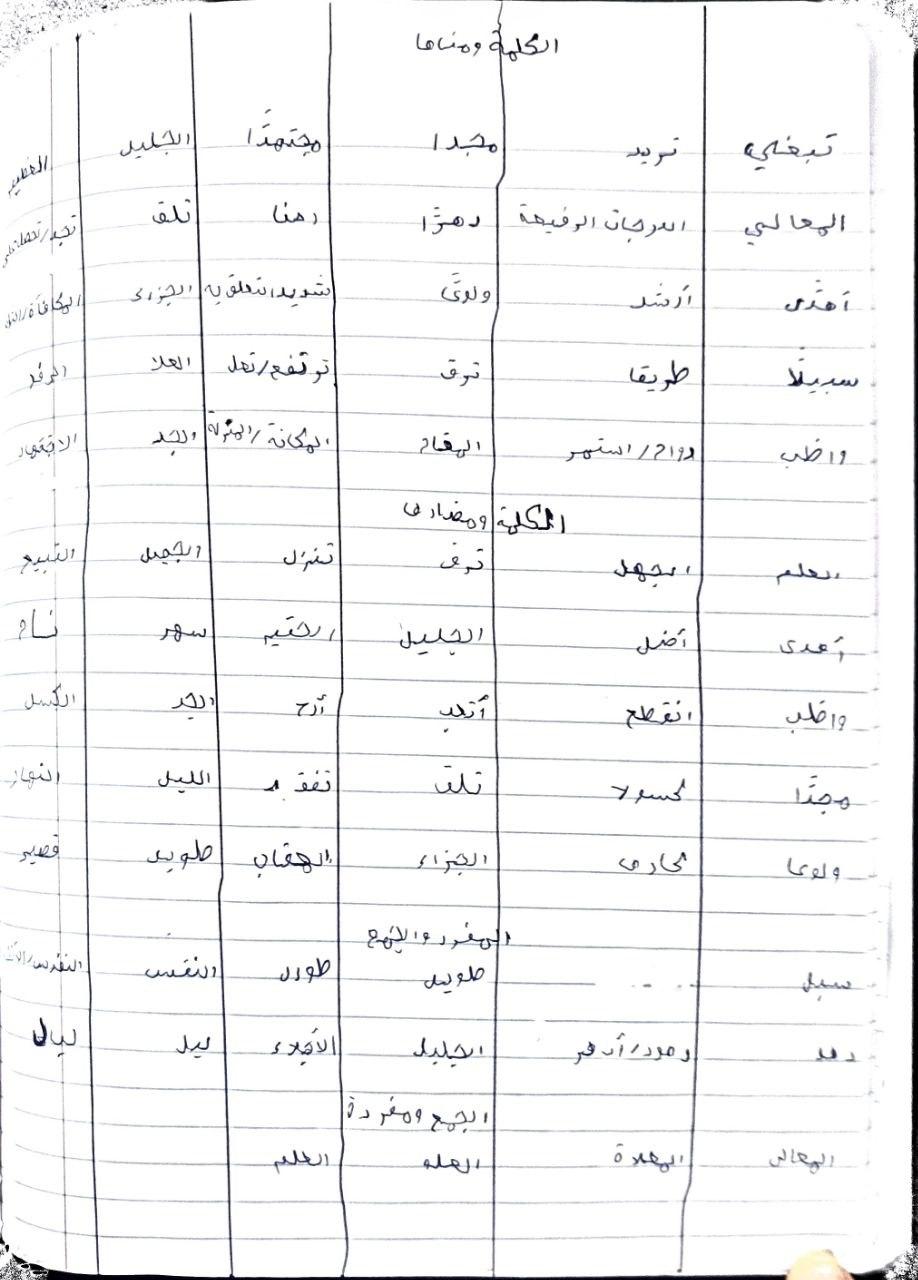 الكلمة ومعناها
تبغي تريد مجدا مجتهدًا الجليل العظيم
المعالي الدرجات الرفيعة دهرًا زمنا تلق تجد/تحصل على
أهدى أرشد ولوعًا شديد التعلق به الجزاء
سبيلًا طريقا ترق ترتفع/تعل العلا الرفعة
واظب داوم/استمر المقام المكانة/المنزلة الجد الاجتهاد
الكلمة ومضادها
العلم الجهل ترق تنزل الجميل القبيح
أهدى أضل الجليل الحقير سهر نام
واظب انقطع أتعب أرح الجد الكسل
مجدًا كسولا تلق تفقد الليل النهار
ولوعا كارها الجزاء العقاب طويل قصير
المفرد والجمع
سبيل .... طويل طوال النفس
دهر دهور/أدهر الجليل الأجلاء ليل ليال
الجمع ومفردة
المعالى المعلاة العلو العلم